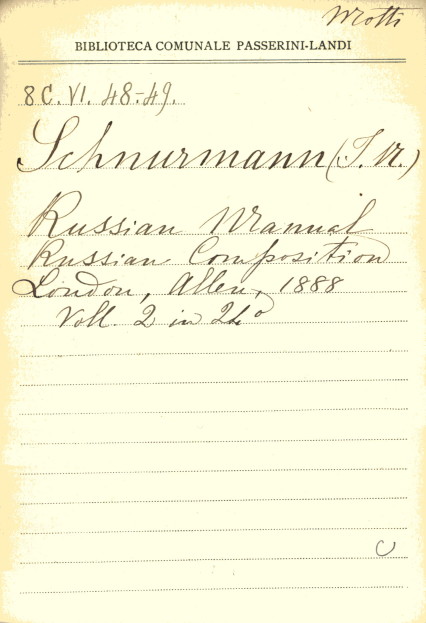 Motti
BIBLIOTECA COMUNALE PASSERINI-LANDI
8 C. VI. 48-49.
Schnurmann (I. N.)
Russian Manual
Russian Composition
London, Allen, 1888
Voll. 2 in 24°
C